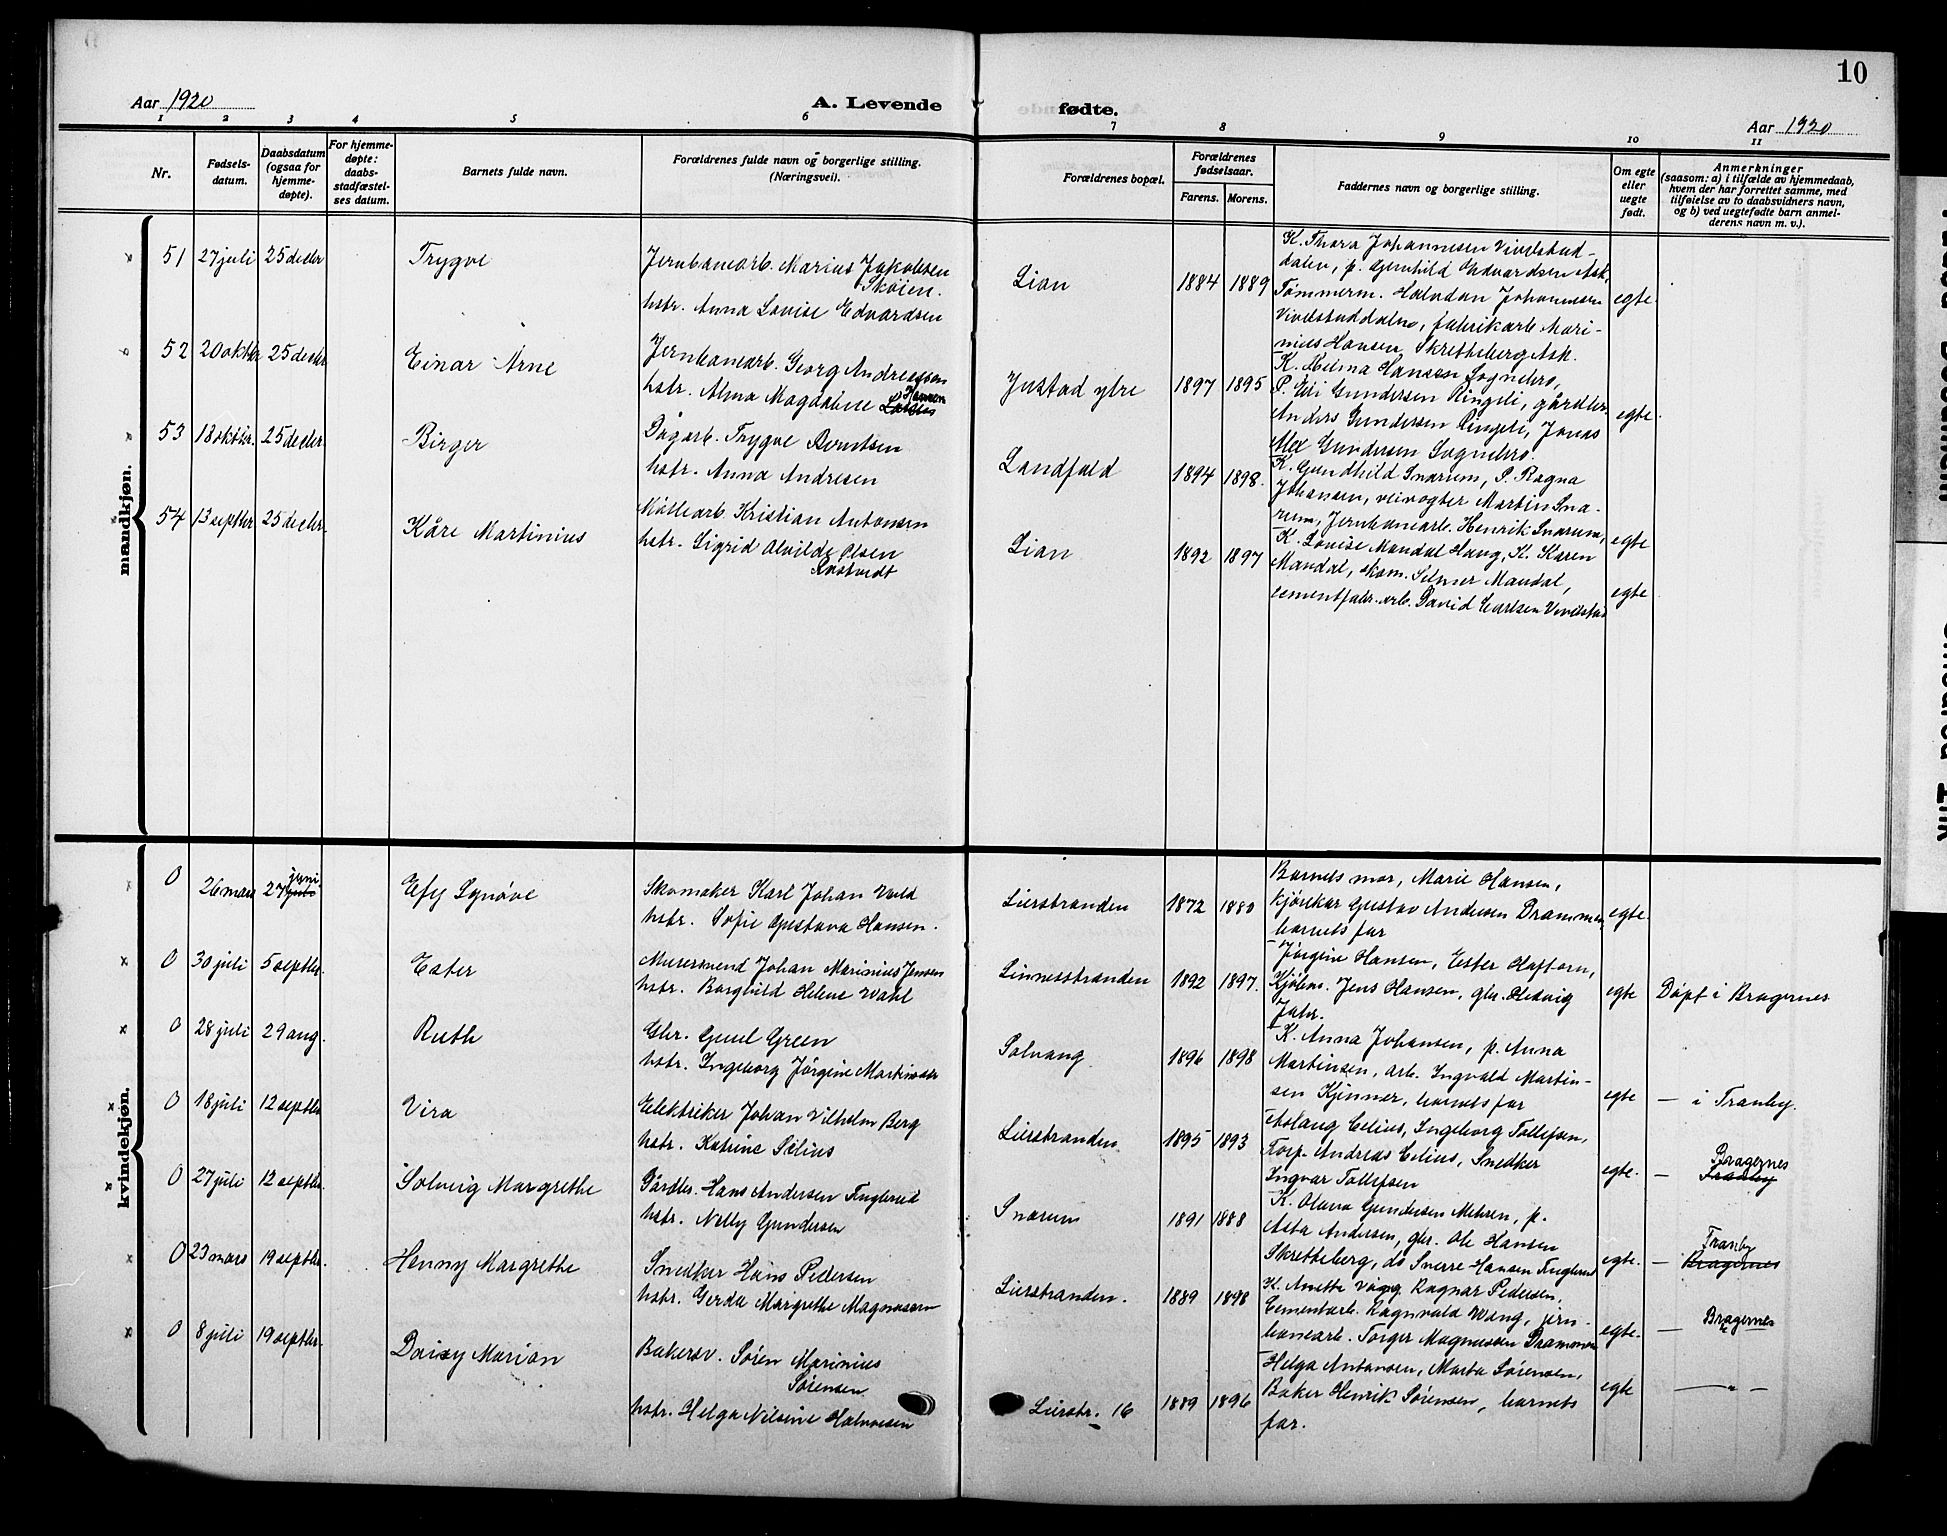 10
Aar 1920
A. Levende
fødte.
Aar 1920
1 2 3 4 5 6 7 8 9 10 11
Nr.
Fødsels-
datum.
Daabsdatum
(ogsaa for
hjemme-
døpte).
For hjemme-
døpte:
daabs-
stadfæstel-
ses datum.
Barnets fulde navn.
Forældrenes fulde navn og borgerlige stilling.
(Næringsvei).
Forældrenes bopæl.
Forældrenes
fødselsaar.
Farens. Morens.
Faddernes navn og borgerlige stilling.
Om egte
eller
uegte
født.
Anmerkninger
(saasom: a) i tilfælde av hjemmedaab,
hvem der har forrettet samme, med
tilføielse av to daabsvidners navn,
og b) ved uegtefødte barn anmel-
derens navn m. v.).
mandkjøn.
51 27 juli 25 decbr Trygve
Jernbanearb. Marius Jakobsen
Skøien.
hstr. Anna Lovise Edvardsen
Lian 1884 1889
K. Thora Johannesen Vivelstad-
dalen, p. Gunhild Edvardsen Ask,
Tømmerm. Halvdan Johannesen
Vivelstaddalen, fabrikarb. Mari-
nius Hansen, Skretteberg Ask.
egte.
52 20 oktbr 25 decbr Einar Arne
Jernbanearb. Georg Andreassen
hstr. Alma Magdalene Hansen
Justad ytre 1897 1895
K. Helma Hansen Sognebro,
P. Edi Gundersen Ringeli, gårdbr.
Anders Gundersen Ringeli, Jonas
Gundersen Sognebro.
egte.
53 18 oktbr. 25 decbr. Birger
Dagarb. Trygve Berntsen
hstr. Anna Andresen
Landfald 1894 1898.
K. Gundhild Snarum, P. Ragna
Johansen, veivogter Martin Sna-
rum, Jernbanearb. Henrik Snarum,
egte
54 13 septbr. 25 decbr. Kåre Martinius
Møllearb. Kristian Antonsen
hstr. Sigrid Alvilde Olsen
Lian 1892 1897
K. Lovise Mandal Haug, K. Karen
Mandal, skom. Selmer Mandal,
cementfabr. arb. David Carlsen Vivelstad
egte
kvindekjøn.
0 26 mars 27 juni Synøve
Skomaker Karl Johan Vold
hstr. Sofie Gustava Hansen.
Lierstranden 1872 1880
Barnets mor, Marie Hansen,
kjørekar Gustav Andersen Drammen,
barnets far
egte.
0 30 juli 5 septbr. Ester
Murersvend Johan Marinius Jensen
hstr. Borghild Helene Wahl
Linnesstranden 1892 1897.
Jørgine Hansen, Ester Haftorn,
Jens Hansen, gbr. Hedvig
egte Døpt i Bragernes
0 28 juli 29 aug. Ruth
Gbr. Green
hstr. Ingeborg Jørgine Martinsen
Solvang 1896 1898
K. Anna Johansen, p. Anna
Martinsen, arb. Ingvald Martin-
sen Kjenner, barnets far
egte — i Tranby.
0 18 juli 12 septbr Vira
Elektriker Johan Vilhelm Berg
hstr. Katrine Selius
Lierstranden 1895 1893
Aslaug Celius, Ingeborg Tollefsen,
Korp. Andreas Celius, Snedker
Ingvar Tollefsen
egte. — Bragernes
Tranby
0 27 juli 12 septbr. Solveig Margrethe
Gårdbr. Hans Andersen Fuglerud
hstr. Nelly Gundersen
Snarum 1891 1888
K. Olava Gundersen Mehren, p.
Asta Andersen, gbr. Ole Hansen
Skretteberg, do Sverre Hansen Fuglerud
egte. — Tranby
Bragernes
0 23 mars 19 septbr. Henny Margrethe
Snedker Hans Pedersen
hstr. Gerda Margrethe Magnussen
Lierstranden. 1889 1898
K. Anette Ragnar Pedersen,
Cementarb. Ragnvald Wang, jern-
banearb. Torger Magnussen Drammen
egte. — Bragernes
0 8 juli 19 septbr. Daisy Marian
Bakersv. Søren Marinius
Sørensen
hstr. Helga Nilsine Halvorsen
Lierstr. 16 1889 1896
Helga Antonsen, Marta Sørensen,
Baker Henrik Sørensen, barnets
far.
egte — " —